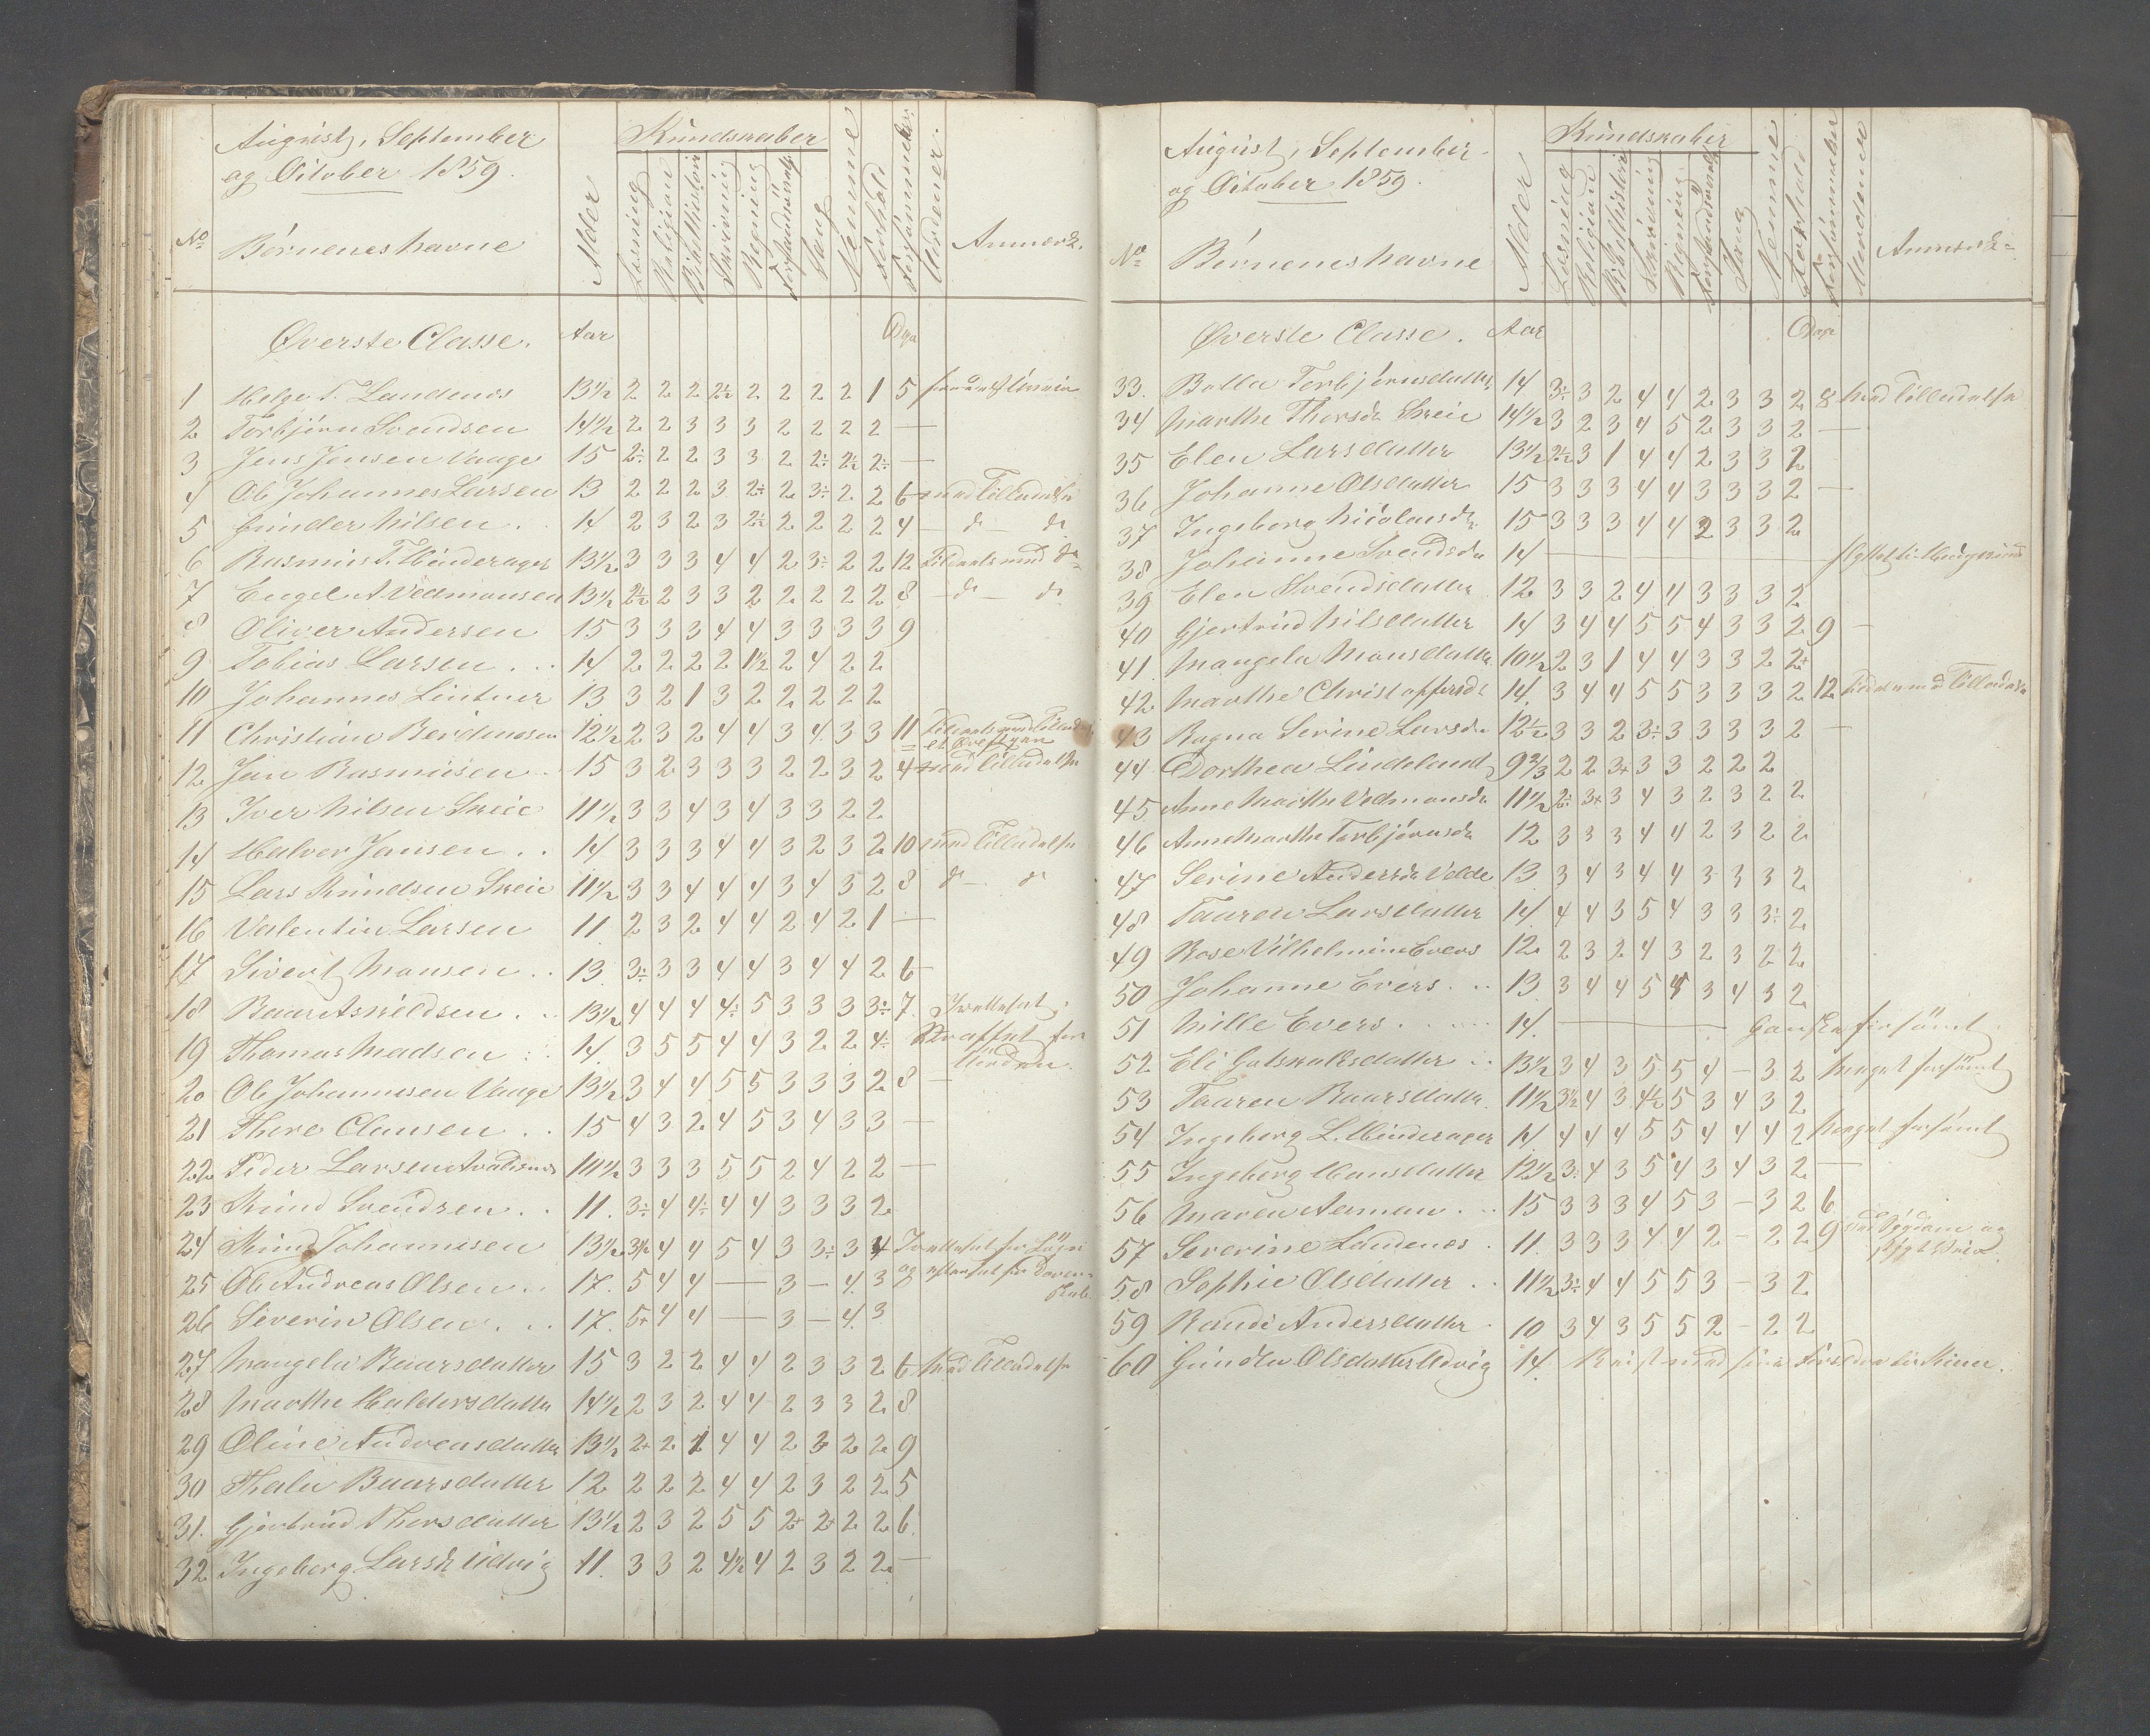 August, September
og October 1859.
Kundskaber
No
Børnenes Navne
Alder
Læsning
Religion
Bibelhistorie
Skrivning
Regning
Forstandsøvels.
Sang
Nemme
Forhold
Forsømmelser
Anmærk.
Øverste Classe. Aar Dage
1 Helge T. Landenes 13 1/2 2 2 2 2 1/2 2 2 2 2 1 5
2 Torbjørn Svendsen 14 1/2 2 2 3 3 3 2 2 2 2 —
3 Jens Jensen Vaage 15 2÷ 2 2 3 3 2 2÷ 2 1/2 2÷ —
4 Ole Johannes Larsen 13 2 2 2 3 2÷ 2 3÷ 2 2 6 med Tilladelse
5 Gunder Nilsen . 14 2 3 2 3 2 1/2 2 2 2 2 4 — do do
6 Rasmus T. Hinderager 13 1/2 3 3 3 4 4 2 3÷ 2 2 12 Tildeels med do
7 Engel A Vedmansen 13 1/2 2 1/2 2 3 3 2 2 2 2 2 8 — do — do
8 Oliver Andersen 15 3 3 3 4 4 3 3 3 3 9
9 Tobias Larsen . . . 14 2 2 2 2 1 1/2 2 4 2 2
10 Johannes Lintner 13 3 2 1 3 2 2 2 2 2
11 Christian Berentsen 12 1/2 2 3 2 4 4 3 4 3 3 11 Tildeels med Tillad.
12 Jan Rasmussen . . 15 3 2 3 3 3 2 2 3 2 4 med Tilladelse
13 Iver Nilsen Skeie 11 1/2 3 3 4 3 4 3 3 2 2
14 Halvor Jansen . . 14 3 3 3 4 4 3 2 3 2 10 med Tilladelse
15 Lars Knudsen Skeie 11 1/2 3 3 4 4 4 3 4 3 2 8 do — do
16 Valentin Larsen 11 2 3 2 4 4 2 4 2 1 —
17 Sivert Mansen . . 13 3÷ 3 3 4 4 3 4 4 2 6 —
18 Baar Askildsen . . 13 1/2 4 4 4 4÷ 5 3 3 3 3÷ 7 Irettesat,
19 Thomas Madsen . . 14. 3 5 5 4 4 3 2 2 4÷ Straffet for
20 Ole Johannesen Vaage 13 1/2 3 4 4 5 5 3 3 3 2 8 —
21 Thore Clausen . . 15 4 3 2 4 5 3 4 3 3 —
22 Peder Larsen Avaldsnes 10 1/2 3 3 3 5 5 2 4 2 2 —
23 Knud Svendsen . . 11. 3÷ 4 4÷ 4 4 3 3 3 2
24 Knud Johannesen 13 1/2 3 1/2 4 4 5 4 3 3÷ 3 4 Irettesat for Løgn
25 Ole Andreas Olsen . . 17. 5 4 4 — 3 — 4. 3 og eftersat for Doven-
skab
26 Severin Olsen . . . 17. 5+ 4 4 — 3 — 4. 3
27 Mangela Baarsdatter 15 3 2 2 4 4 2 3 3 2 6 Med Tilladelse
28 Marthe Haldorsdatter 14 1/2 2 3 2 4 4 2 3 3 2 8
29 Oline Andreasdatter 13 1/2 2+ 2 1 4 4 2 3 2 2 9
30 Thalie Baarsdatter 12 2 2 2 4 4 2 3 2 2 5
31. Gjertrud Thorsdatter 13 1/2 2 3 2 5 5 2+ 2+ 2 2 6.
32 Ingeborg Larsdr Udvig 11. 3 3 2 4 1/2 4 2 3 2 2 —
August, September
og October 1859.
Kundskaber
No
Børnenes Navne
Alder
Læsning
Religion
Bibelhistorie
Skrivning
Regning
Forstandsøvels
Sang
Nemme
Forhold
Forsømmelser
Anmærk.
Øverste Classe. Aar Dage
33. Bolla Torbjørnsdatter 14 3÷ 3 2 4 4 2 3 3 2 8 Med Tilladelse
34 Marthe Thorsdr Skeie 14 1/2 3 2 3 4 5 2 3 3 2 —
35 Elen Larsdatter 13 1/2 2 1/2 3 1 4 4 2 3 3 2
36 Johanne Olsdatter 15 3 3 3 4 4 3 3 3 2 —
37 Ingeborg Nicolaisdr 15 3 3 3 4 4 2 3 3 2
38 Johanne Svendsdr 14 — flyttet til Haugesund
39 Elen Svendsdatter 12 3 3 2 4 4 3 3 3 2
40 Gjertrud Nilsdatter 14 3 4 4 5 5 4 3 3 2 9 —
41. Mangela Monsdatter 10 1/2 2 3 1 4 4 3 3 2 2+
42 Marthe Christophersdr 14. 3 4 4 5 5 3 3 3 2 12 Tildels med Tilladelse
43 Ragna Serine Larsdr 12 1/2 3 3 2 3÷ 3 3 3 3 2 —
44 Dorthea Lindeland 9 2/3 2 2 3+ 3 3 2 2 2
45 Anne Marthe Vedmansdr 11 1/2 2÷ 3+ 3 4 3 2 3 2 2
46 Anne Marthe Torbjørnsdr 12 3 3 3 4 4 2 3 2 2
47 Serine Andersdr Velde 13 3 4 3 4 4 3 3 3 2
48 Tauren Larsdatter 14 4 4 3 5 4 3 3 3÷ 2
49 Rose Vilhelmine Evers 12 2 3 2 4 3 2 3 2 2
50 Johanne Evers . . . 13 3 4 4 5 4 3 4 3 2
51 Mille Evers . . . . . 14. — Ganske forsømt
52 Eli Gulskalksdatter . . 13 1/2 3 4 3 5 5 4 — 3 2 Meget forsømt
53 Tauren Baarsdatter 11 1/2 3 1/2 4 3 4 1/2 5 3 4 3 2
54 Ingeborg L. Hinderager 14 4 4 4 5 5 4 4 4 2 Meget forsømt
55 Ingeborg Hansdatter 12 1/2 3÷ 4 3 5 4 3 4 3 2 —
56 Maren Aamun . . . 15 3 3 3 4 5 3 — 3 2 6
57 Severine Landenes . 11. 3 3 3 4 4 2 — 2 2 9 Ved Sygdom og
58 Sophie Olsdatter . . 11 1/2 3÷ 4 4 5 5 3 — 3 2
59 Randi Andersdatter . 10 3 4 3 5 5 2 — 2 2
60 Gundla Olsdatter Udvig 14. Reist med sine Forældre